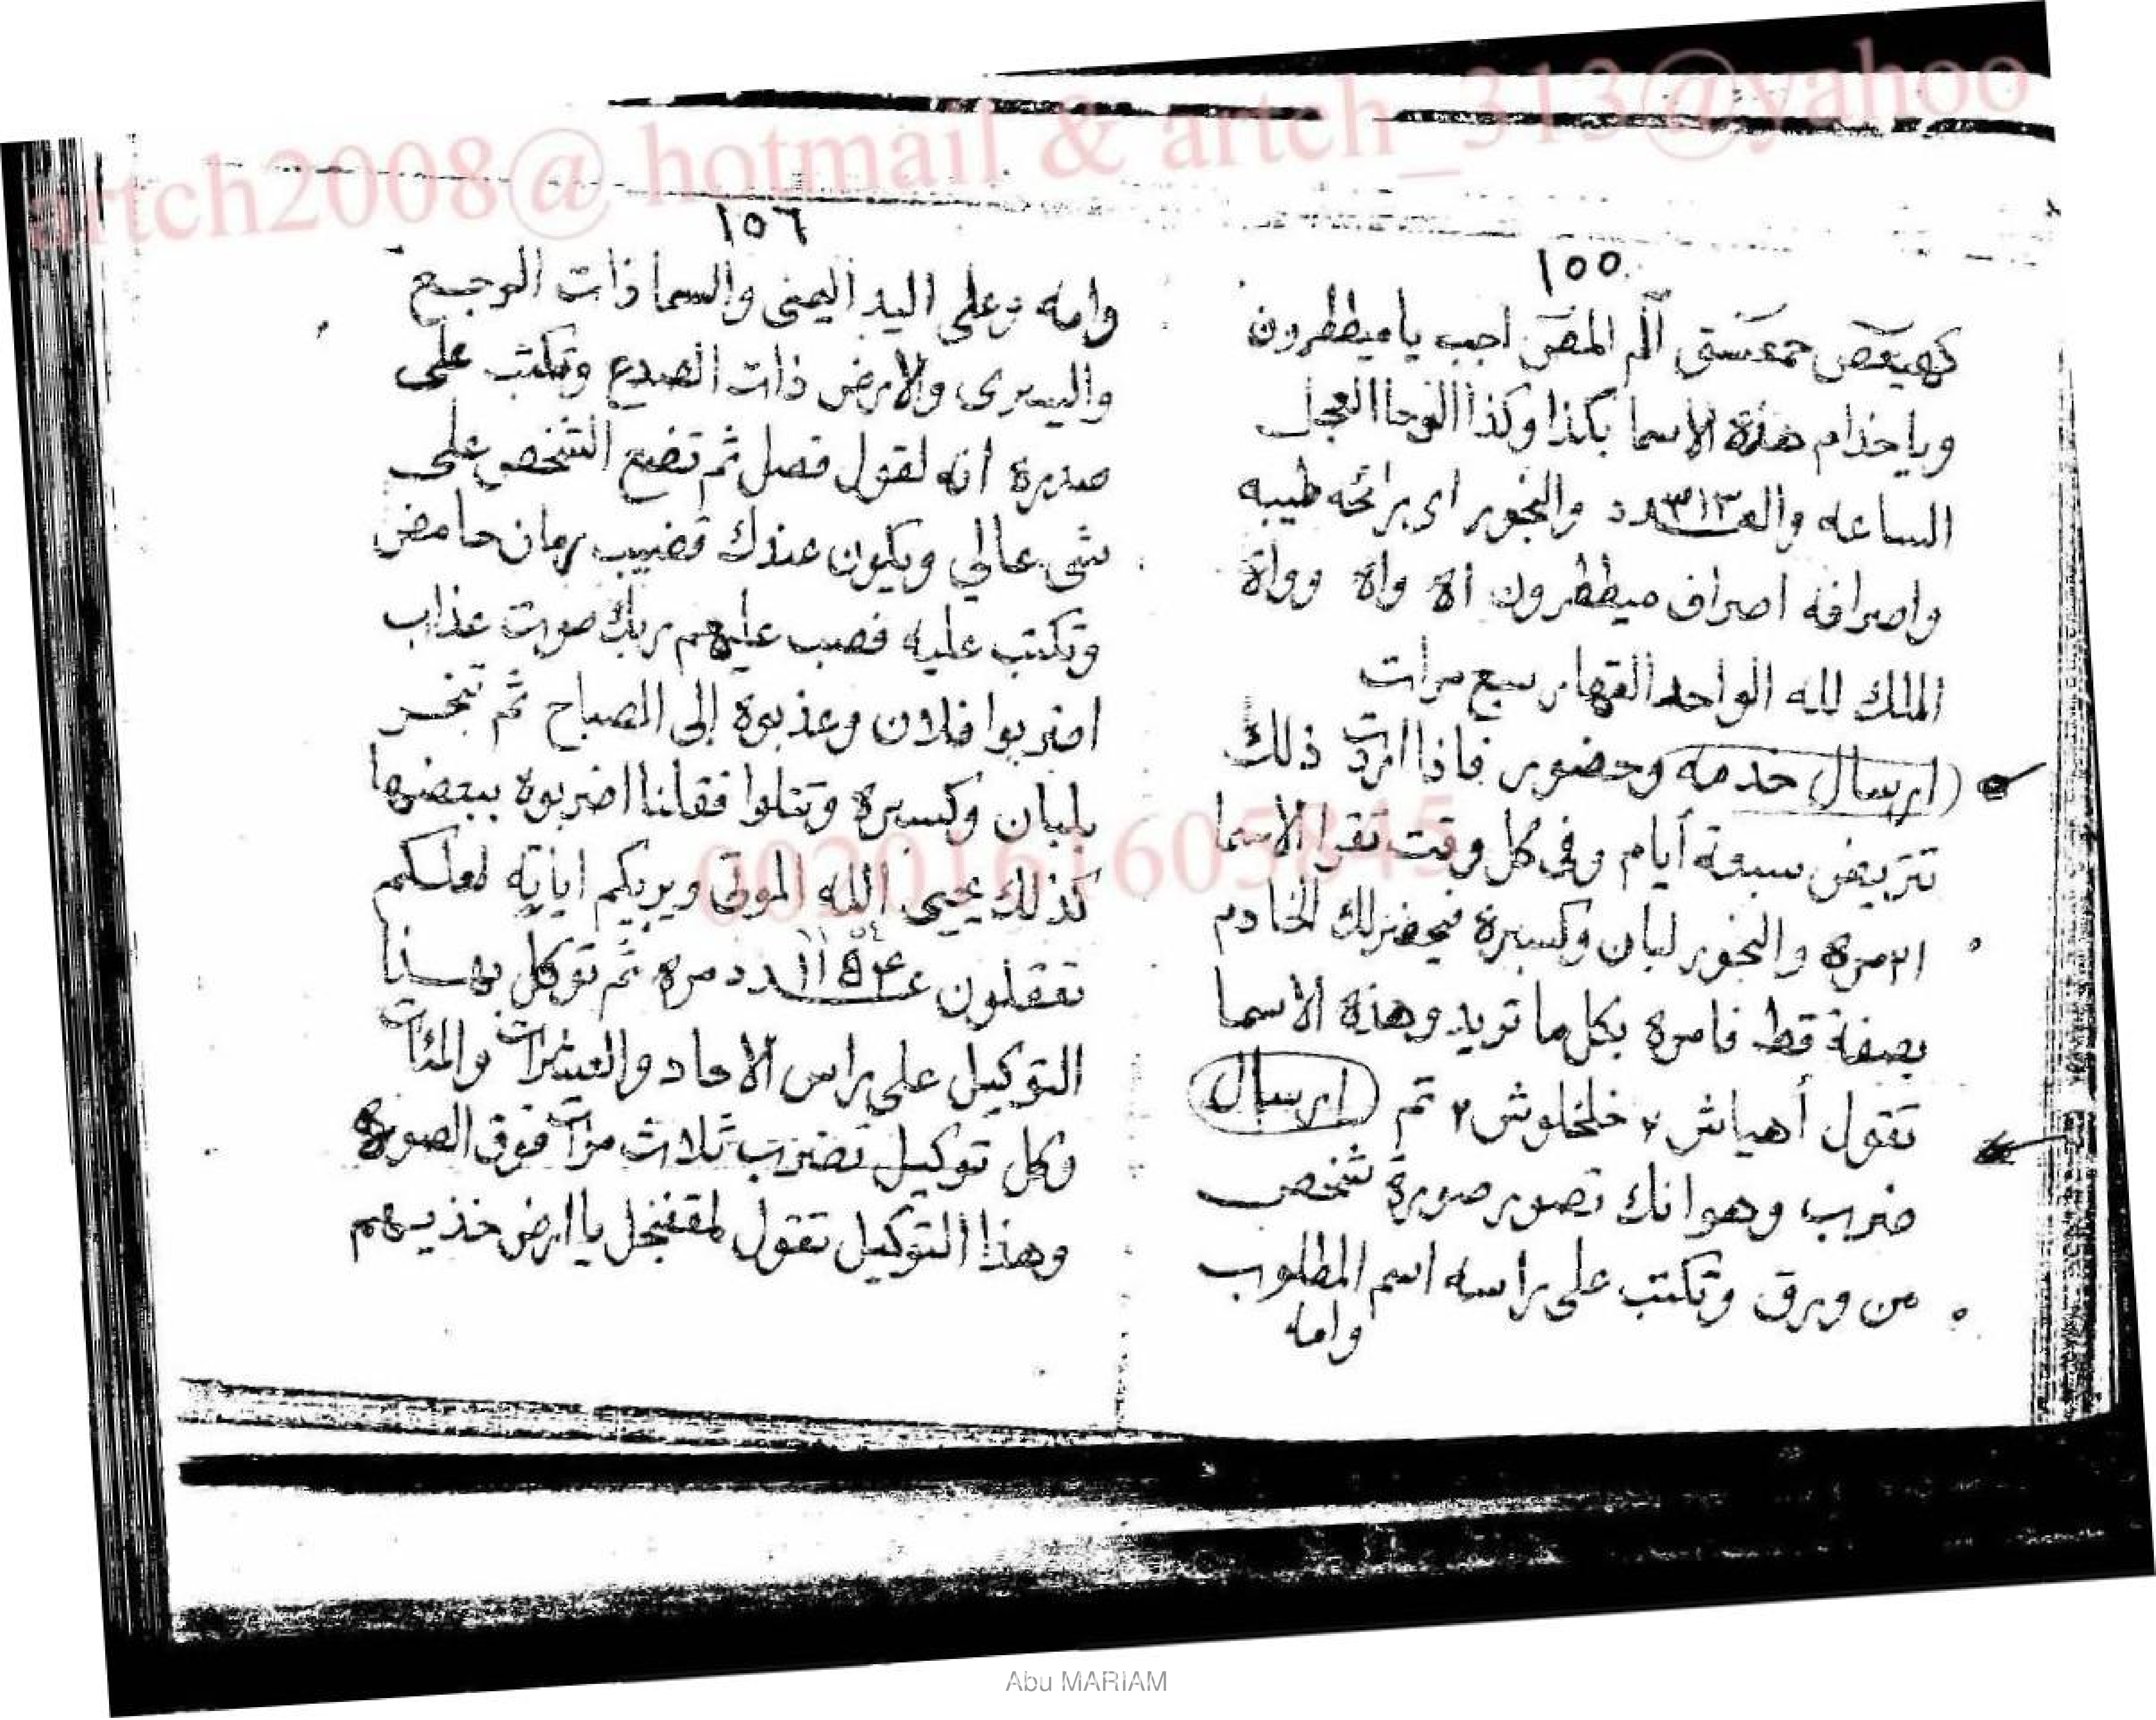 artch2008@ hotmail & artch_313@yahoo
١٥٥
كهيعص حمعسق الم المص اجب يا ميططرون
ويا خدام هذه الاسما بكذا وكذا الوحا العجل
الساعه والعـدد ٣١٣ والبخور اى برائحه طيبه
واصرافه اصراف ميططرون اه واه وواه
الملك لله الواحد القهار سبع مرات
(ارسال) خدمه وحضور فاذا اردت ذلك
تتريض سبعة أيام وفى كل وقت تقرا الاسما
٢١ مره والبخور لبان وكسبرة فيحضر لك الخادم
بصفة قط فامره بكل ما تريد وهذه الاسما
تقول أهياش ٢ خلخلوش ٢ تم (ارسال)
ضرب وهو انك تصور صورة شخص
من ورق وتكتب على راسه اسم المطلوب
وامه
١٥٦
وامه وعلى اليد اليمنى والسما ذات الرجـع
واليسرى والارض ذات الصدع وتكتب على
صدره انه لقول فصل ثم تضع الشخص على
شى عالي ويكون عندك قضيب رمان حامض
وتكتب عليه فصب عليهم ربك صوت عذاب
اضربوا فلان وعذبوه إلى الصباح ثم تبخـر
بلبان وكسبره وتتلوا فقلنا اضربوه ببعضها
كذلك يحيى الله الموتى ويريكم اياته لعلـكم
تعقلون عـدد مره ثم توكل بهـذا
التوكيل على راس الاحاد والعشرات والمئات
وكل توكيل تضرب ثلاث مرات فوق الصوره
وهذا التوكيل تقول لمقفنجل يا ارض خذيـهم
Abu MARIAM